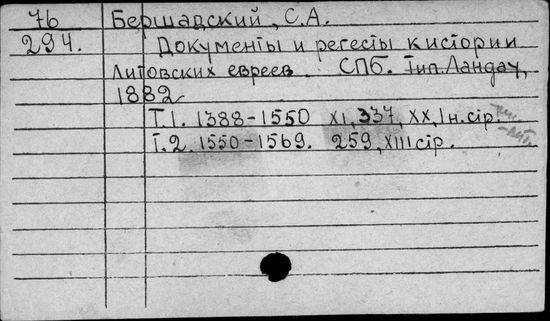 76 Бершадский, С.А.
294. Документы и регесты к истории
литовских евреев. СПб. Тип. Ландау,
1882
Т.1. 1388-1550 XI, 337, XX, 1 н. стр.
Т.2. 1550-1569. 259, XIII стр.